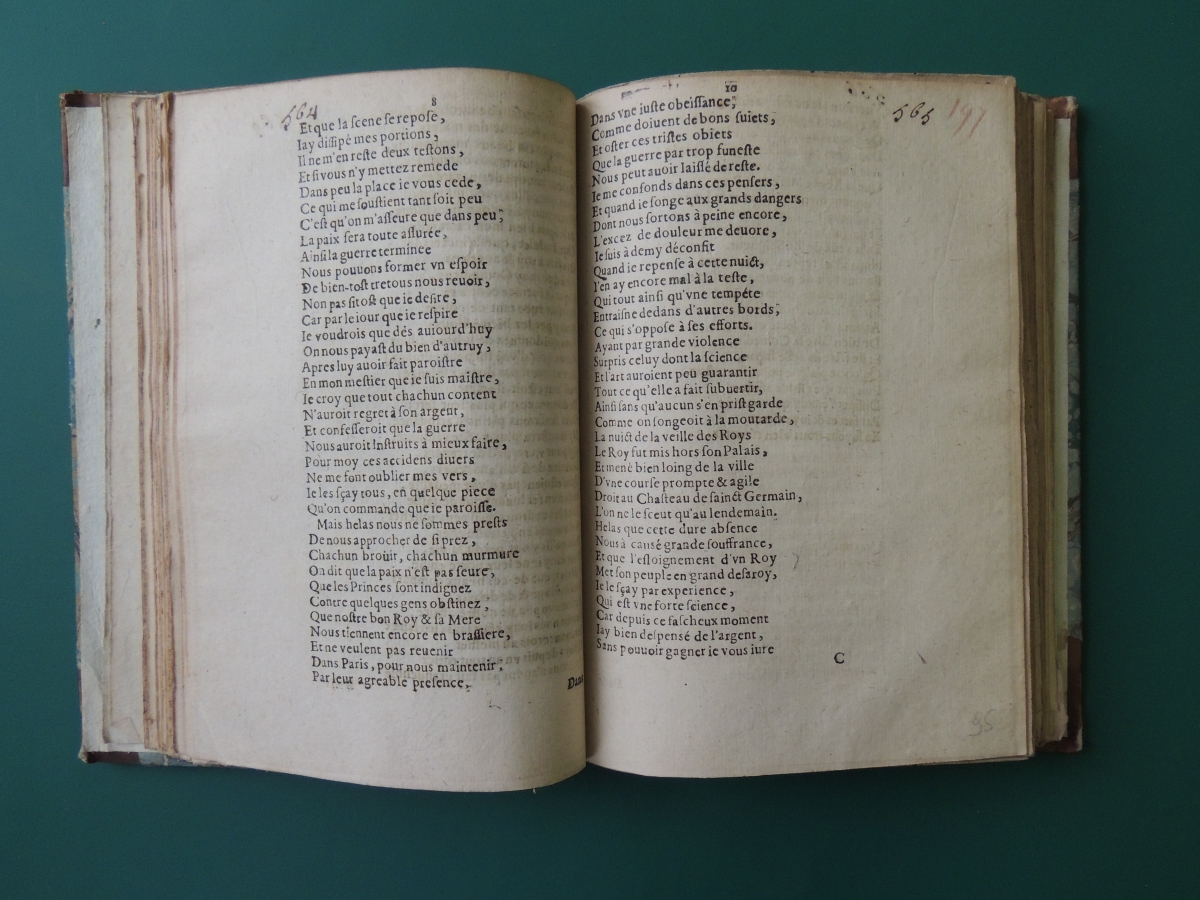 564
8
Et que la scene se repose,
Iay dissipé mes portions,
Il ne m'en reste deux testons,
Et si vous n'y mettez remede
Dans peu la place ie vous cede,
Ce qui me soustient tant soit peu
C'est qu'on m'asseure que dans peu;
La paix sera toute assurée,
Ainsi la guerre terminée
Nous pouuons former vn espoir
De bien-tost tretous nous reuoir,
Non pas sitost que ie desire,
Car par le iour que ie respire
Ie voudrois que dés auiourd'huy
On nous payast du bien d'autruy,
Apres luy auoir fait paroistre
En mon mestier que ie suis maistre,
Ie croy que tout chachun content
N'auroit regret à son argent,
Et confesseroit que la guerre
Nous auroit Instruits à mieux faire,
Pour moy ces accidens diuers
Ne me font oublier mes vers,
Ie les sçay tous, en quelque piece
Qu'on commande que ie paroisse.
Mais helas nous ne sommes prests
De nous approcher de si prez,
Chachun broüir, chachun murmure
On dit que la paix n'est pas seure,
Que les Princes sont indignez
Contre quelques gens obstinez,
Que nostre bon Roy & sa Mere
Nous tiennent encore en brassiere,
Et ne veulent pas reuenir
Dans Paris, pour nous maintenir;
Par leur agreable presence,
Dans
10
565
197
Dans vne iuste obeissance;
Comme doiuent de bons suiets,
Et oster ces tristes obiets
Que la guerre par trop funeste
Nous peut auoir laissé de reste.
Ie me confonds dans ces pensers,
Et quand ie songe aux grands dangers
Dont nous sortons à peine encore,
L'excez de douleur me deuore,
Ie suis à demy déconfit
Quand ie repense à cette nuict,
I'en ay encore mal à la teste,
Qui tout ainsi qu'vne tempéte
Entraisne dedans d'autres bords;
Ce qui s'oppose à ses efforts.
Ayant par grande violence
Surpris celuy dont la science
Et l'art auroient peu guarantir
Tout ce qu'elle a fait subuertir,
Ainsi sans qu'aucun s'en prist garde
Comme on songeoit à la moutarde,
La nuict de la veille des Roys
Le Roy fut mis hors son Palais,
Et mené bien loing de la ville
D'vne course prompte & agile
Droit au Chasteau de sainct Germain,
L'on ne le sceut qu'au lendemain.
Helas que cette dure absence
Nous à causé grande souffrance,
Et que l'esloignement d'vn Roy
Met son peuple en grand desaroy,
Ie le sçay par experience,
Qui est vne forte science,
Car depuis ce fascheux moment
Iay bien despensé de l'argent,
Sans pouuoir gagner ie vous iure
C
95